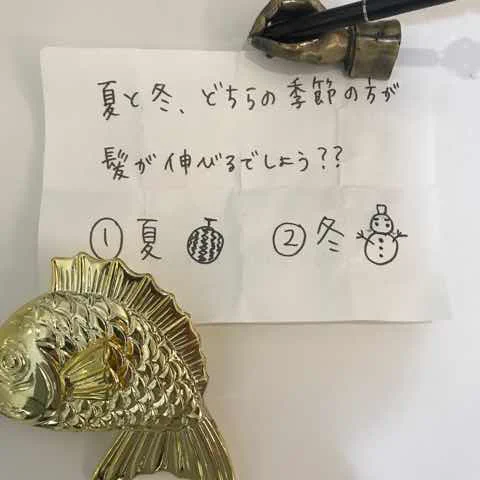 夏と冬、どちらの季節の方が
髪が伸びるでしょう??
① 夏 ② 冬